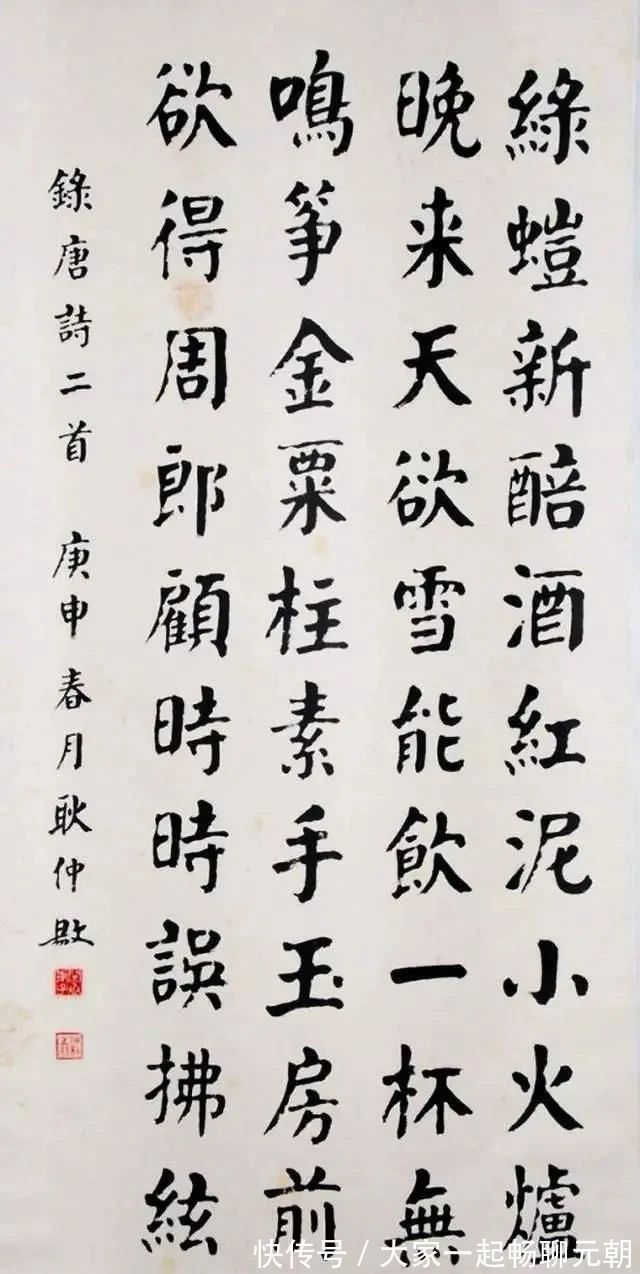 綠螘新醅酒紅泥小火爐
晚来天欲雪能飲一杯無
鳴筝金粟柱素手玉房前
欲得周郎顧時時誤拂絃
錄唐詩二首 庚申春月耿仲敭
快传号 / 大家一起畅聊元朝